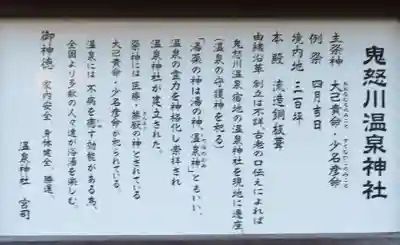 鬼怒川温泉神社
主祭神 大己貴命・少名彦命
例祭 四月吉日
境内地 三百坪
本殿 流造銅板葺
由緒沿革 創立は不詳、古老の口伝えによれば
鬼怒川温泉宿地の温泉神社を現地に遷座、
(温泉の守護神を祀る)
「湯薬の神は湯の神、温泉神」ともいい、
温泉の霊力を神格化し崇拝され
温泉神社が建立された。
祭神には 医療・薬販の神とされている
大己貴命・少名彦命が祀られている。
温泉には 不病を癒す効能がある為、
全国より多数の人々達が浴湯を楽しむ。
御神徳 家内安全 身体健全 勝運、
温泉神社 宮司